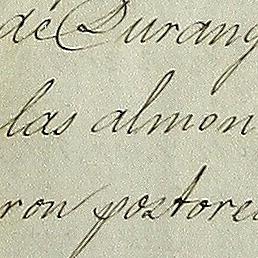 de Durang
las almon
ron postore